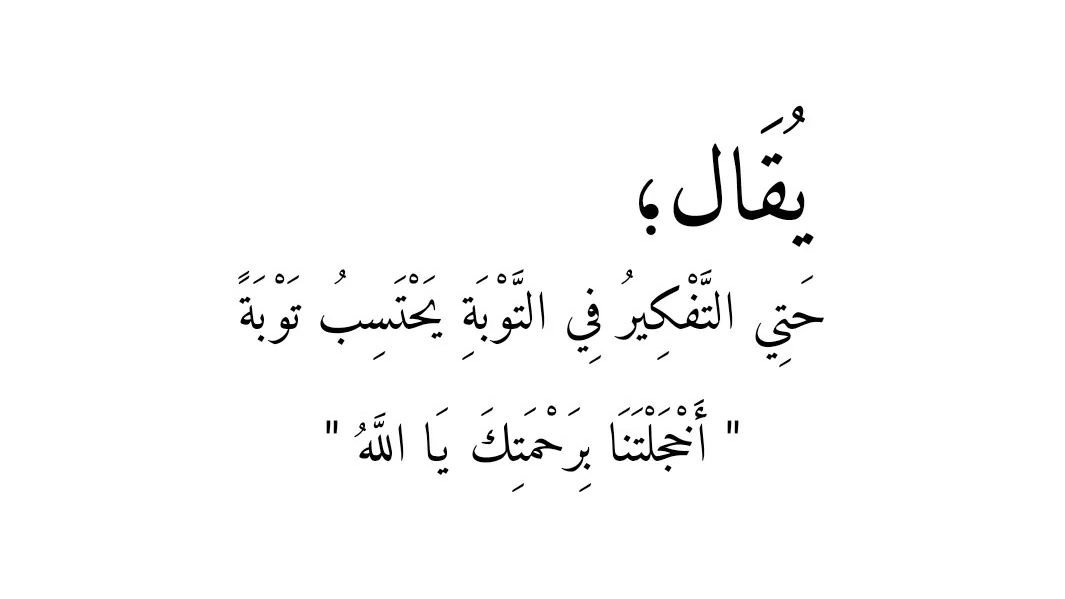 يُقَال؛
حَتِي التَّفْكِيرُ فِي التَّوْبَةِ يَحْتَسِبُ تَوْبَةً
" أَخْجَلْتَنَا بِرَحْمَتِكَ يَا اللَّهُ "